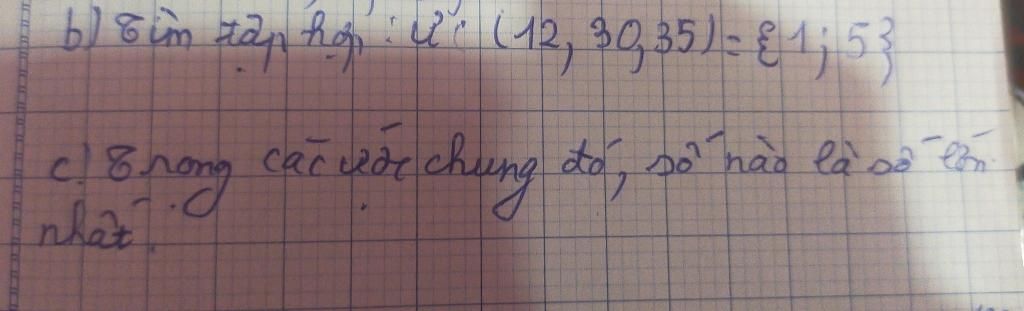 b) Tìm tập hợp : Ư : (12, 30, 35) = {1; 5}
c) Trong các ước chung đó, số nào là số lớn
nhất.